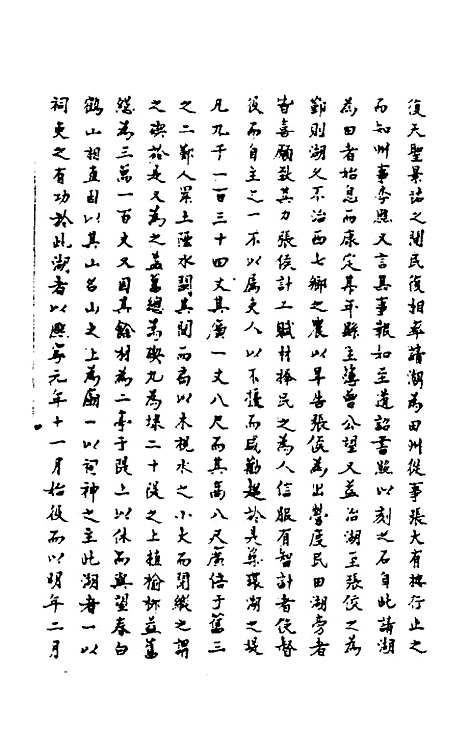 復天聖景祐之間民復相率請湖為田州從事張大有按行止之
而知州事李照又言其事報如至道詔書照以刻之石自此請湖
為田者始息而康定某年縣主簿曾公望又益治湖至張侯之為
鄞則湖久不治西七鄉之農以旱告張侯為出營度民田湖旁者
皆喜願致其力張侯計工賦材擇民之為人信服有智計者使督
役而自主之一不以屬吏人以不擾而咸勸趨於是築環湖之堤
凡九千一百三十四丈其廣一丈八尺而其高八尺廣倍于舊三
之二鄞人累土堙水闕其間而扃以木視水之小大而閉縱之謂
之碶於是又為之益舊總為碶九為埭二十堤之上植榆柳益舊
總為三萬一百丈又因其餘材為二亭于堤上以休而與望春白
鶴山相直因以其山名山之上為廟一以祠神之主此湖者一以
祠吏之有功於此湖者以熙寧元年十一月始役而以明年二月